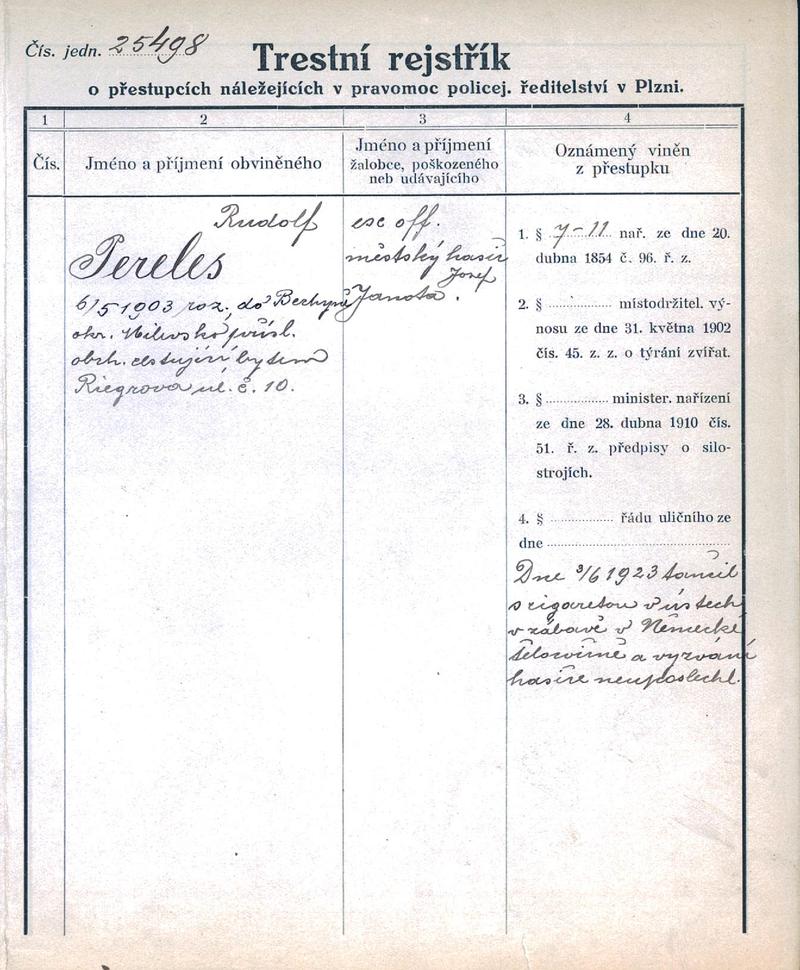 Čís. jedn. 25498
Trestní rejstřík
o přestupcích náležejících v pravomoc policej. ředitelství v Plzni.
1 2 3 4
Čís.
Jméno a příjmení obviněného
Jméno a příjmení
žalobce, poškozeného
neb udávajícího
Oznámený viněn
z přestupku
Rudolf
Pereles
6/5 1903 roz. do Bechyně
okr. Milevsko přísl.
obch. cestující bytem
Riegrova ul. č. 10.
exc off.
městský hasič
Josef
Janota.
1. § 7-11 nař. ze dne 20.
dubna 1854 č. 96. ř. z.
2. § místodržitel. vý-
nosu ze dne 31. května 1902
čís. 45. z. z. o týrání zvířat.
3. § minister. nařízení
ze dne 28. dubna 1910 čís.
51. ř. z. předpisy o silo-
strojích.
4. § řádu uličního ze
dne
Dne 3/6 1923 tančil
s cigaretou v ústech
v zábavě v Německé
tělocvičně a vyzvání
hasiče neuposlechl.